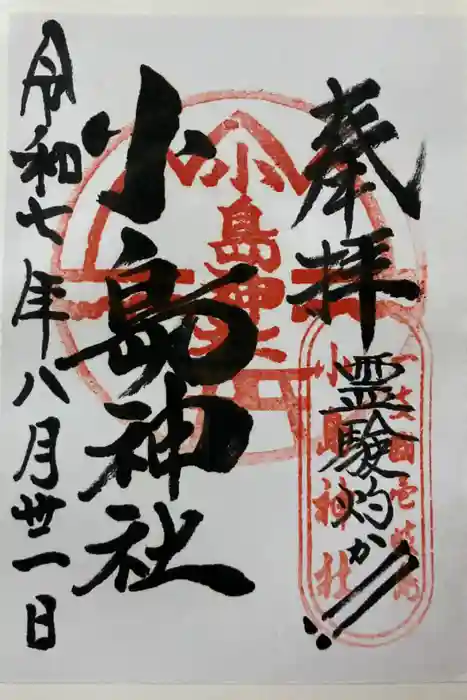 奉拝
霊験灼か!!
小島神社
小島神社
小島神社
令和七年八月卅一日